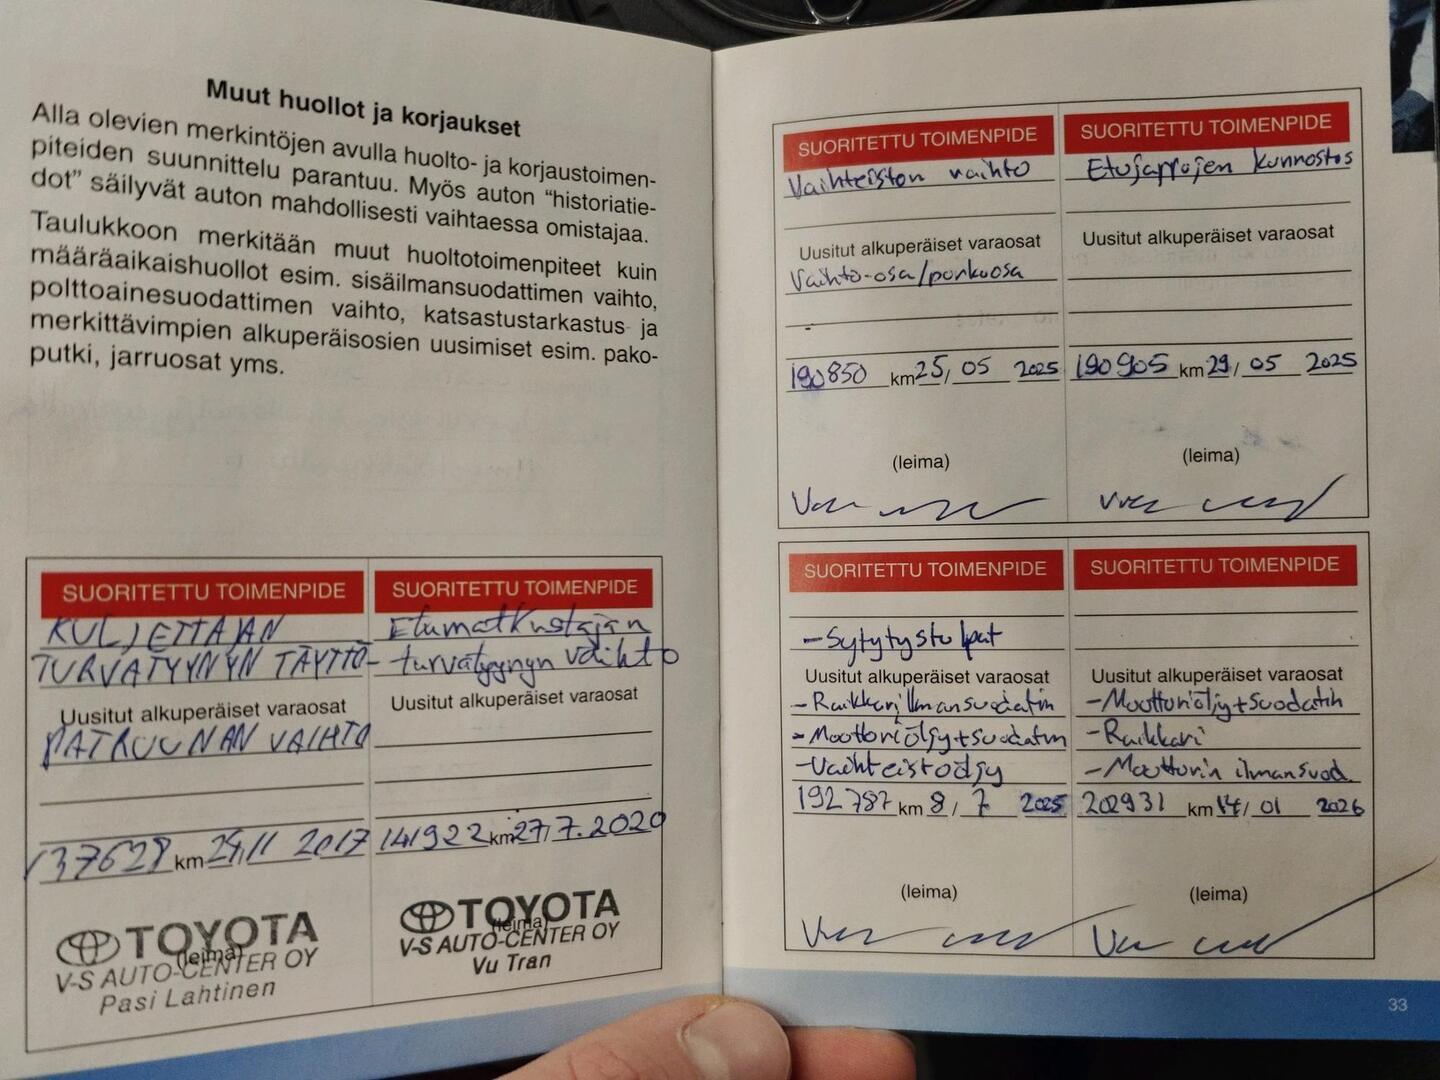 Muut huollot ja korjaukset
Alla olevien merkintöjen avulla huolto- ja korjaustoimen-
piteiden suunnittelu parantuu. Myös auton "historiatie-
dot" säilyvät auton mahdollisesti vaihtaessa omistajaa.
Taulukkoon merkitään muut huoltotoimenpiteet kuin
määräaikaishuollot esim. sisäilmansuodattimen vaihto,
polttoainesuodattimen vaihto, katsastustarkastus ja
merkittävimpien alkuperäisosien uusimiset esim. pako-
putki, jarruosat yms.
SUORITETTU TOIMENPIDE
KULJETTAJAN
TURVATYYNYN TÄYTTÖ-
Uusitut alkuperäiset varaosat
PATRUUNAN VAIHTO
137628 km 29/11 2017
(leima)
TOYOTA
V-S AUTO-CENTER OY
Pasi Lahtinen
SUORITETTU TOIMENPIDE
Etumatkustajan
turvatyynyn vaihto
Uusitut alkuperäiset varaosat
141922 km 27/7.2020
(leima)
TOYOTA
V-S AUTO-CENTER OY
Vu Tran
SUORITETTU TOIMENPIDE
Vaihteiston vaihto
Uusitut alkuperäiset varaosat
Vaihto-osa/purkuosa
190850 km 25/05 2025
(leima)
SUORITETTU TOIMENPIDE
Etujarrujen kunnostus
Uusitut alkuperäiset varaosat
190905 km 29/05 2025
(leima)
SUORITETTU TOIMENPIDE
-Sytytystulpat
Uusitut alkuperäiset varaosat
-Raikkariilmansuodatin
-Moottoriöljy+suodatin
-Vaihteistoöljy
192787 km 8/7 2025
(leima)
SUORITETTU TOIMENPIDE
Uusitut alkuperäiset varaosat
-Moottoriöljy+suodatin
-Raikkari
-Moottorin ilmansuod.
202931 km 14/01 2026
(leima)
33